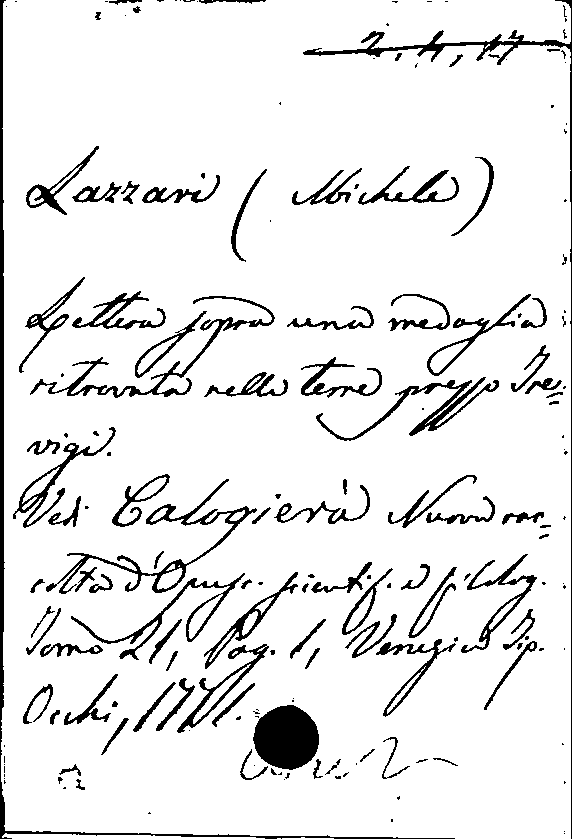 2, 4, 17
Lazzari ( Michele )
Lettera sopra una medaglia
ritrovata nelle terre presso Tre=
vigi.
Vedi Calogierà Nuova rac=
colta d'Opusc. scientif. e filolog.
Tomo 21, Pag. 1, Venezia Tip.
Occhi, 1771.